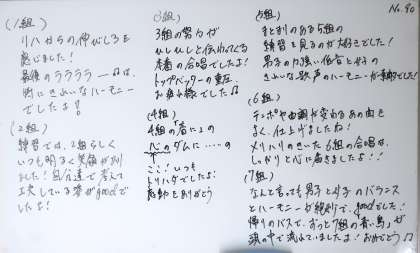 No.90
(1組)
リハからの伸びしろを
感じました!
最後のラララララー♫は、
特にきれいなハーモニー
でしたよ!
(2組)
練習では、2組らしく
いつも明るく笑顔が
ました!自分達で考えて
工夫している姿がgoodで
したよ!
(3組)
3組の努力が
ひしひしと伝わってくる
本番の合唱でしたよ!
トップバッターの重圧
お疲れ様でした♫
(4組)
4組の「香による
心のダムに……の
ここ!いつも
トリハダでしたよ!
感動をありがとう
(5組)
まとまりのある5組の
練習を見るのが大好きでした!
男子の力強い低音と女子の
きれいな歌声のハーモニーが素敵でした!
(6組)
テンポや曲調が変わるあの曲を
よく、仕上げましたね!
メリハリのきいた6組の合唱は、
しっかりと心に届きましたよ!!
(7組)
なんと言っても男子と女子のバランス
とハーモニーが絶妙で、goodでした!
帰りのバスで、ずっと7組の「青い鳥」が
頭の中で流れていましたよ!おめでとう♫